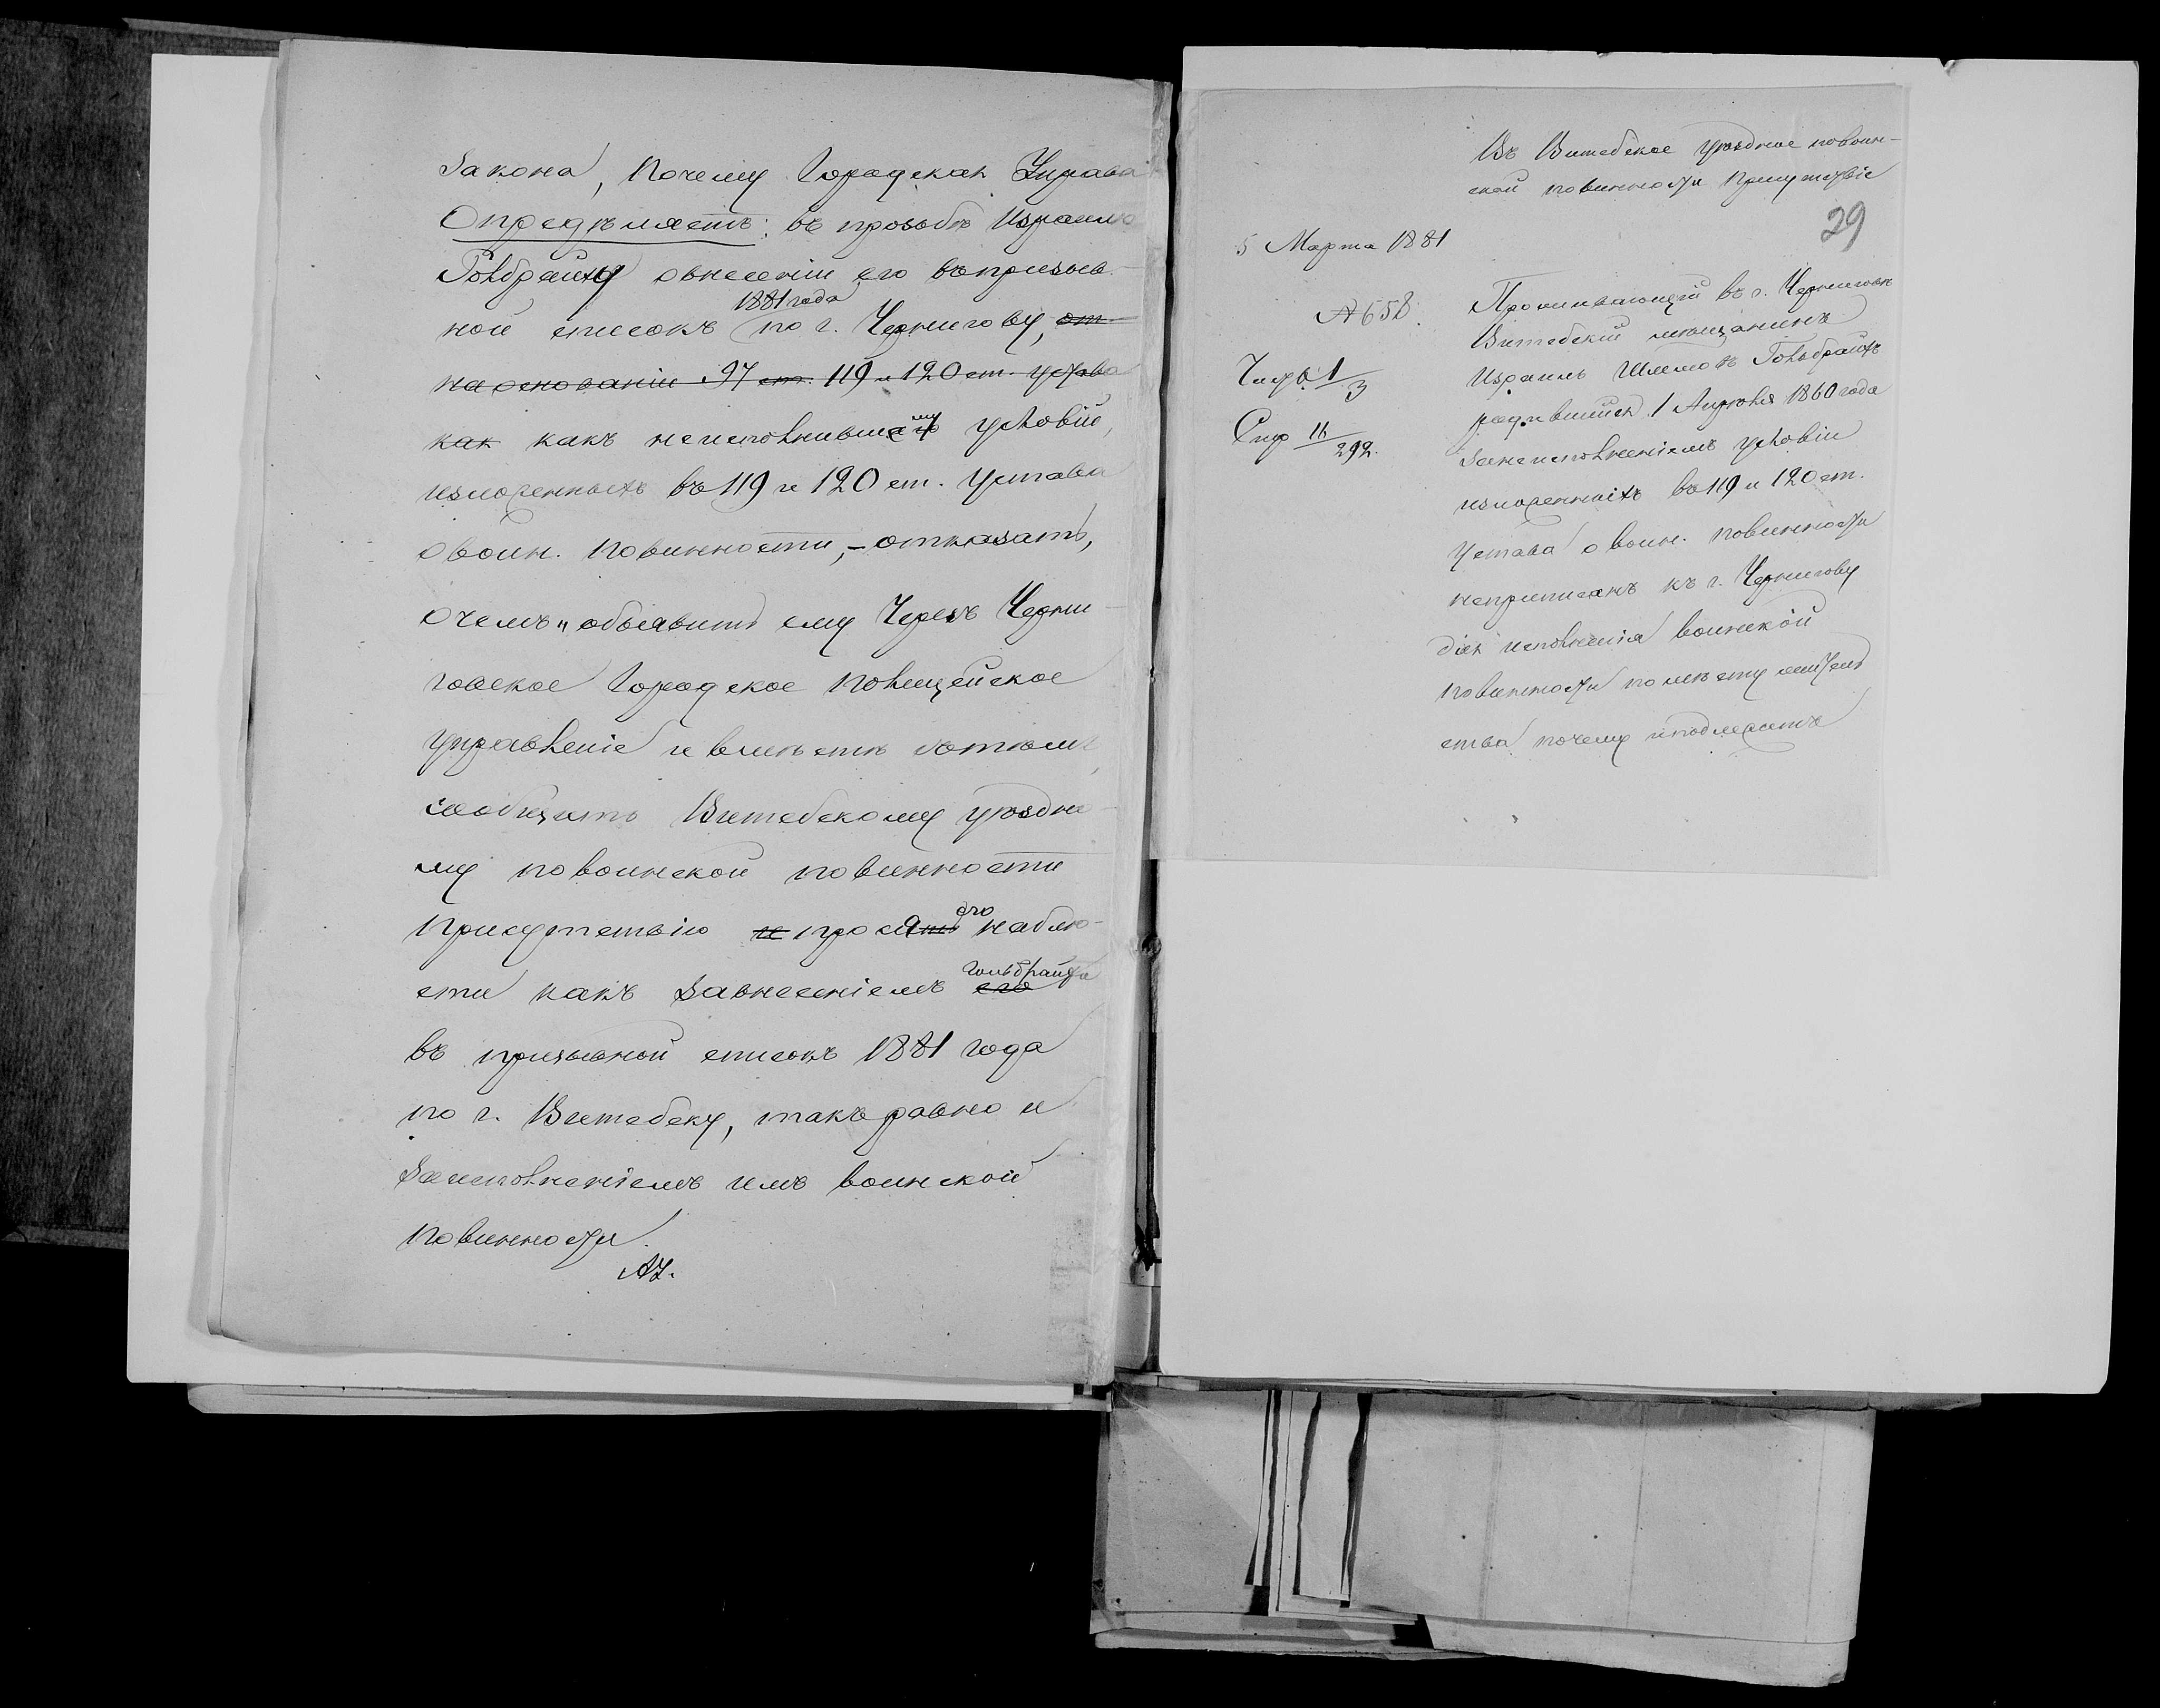 Закона, Почему Городская Управа
Опредѣляетъ: въ прозьбѣ Израиля
Гольбрайха овнесеніи его въ призыв-
1881 года
ной списокъ по г. Чернигову, от-
на основаніи 97 ст. 119 и 120 ст. устава
как какъ неисполнившему условій,
изложенныхъ въ 119 и 120 ст. Устава
о воин. повинности, – отказать,
о чемъ и объявить ему Черезъ Черни-
говское Городское полицейское
управленіе и вмѣстѣ сътѣмъ,
сообщить Витебскому уѣздно-
му по воинской повинности
Присутствію и прося его наблю-
сти какъ завнесеніемъ его Гольбрайха
въ призывной списокъ 1881 года
по г. Витебску, такъ равно и
за исполненіемъ имъ воинской
повинности.
Въ Витебское уѣздное повоин-
ской повинности Присутствіе
29
5 Марта 1881
№ 658.
Проживающій въ г. Черниговѣ
Витебскій мѣщанинъ
Израиль Шлемовъ Гольбрайхъ
родившійся 1 Апрѣля 1860 года
занеисполненіемъ условій
изложенныхъ въ 119 и 120 ст.
Устава о воин. повинности
неприписанъ къ г. Чернигову
для исполненія воинской
повинности по мѣсту жительс
ства почему и подлежитъ
1/3
11/292.